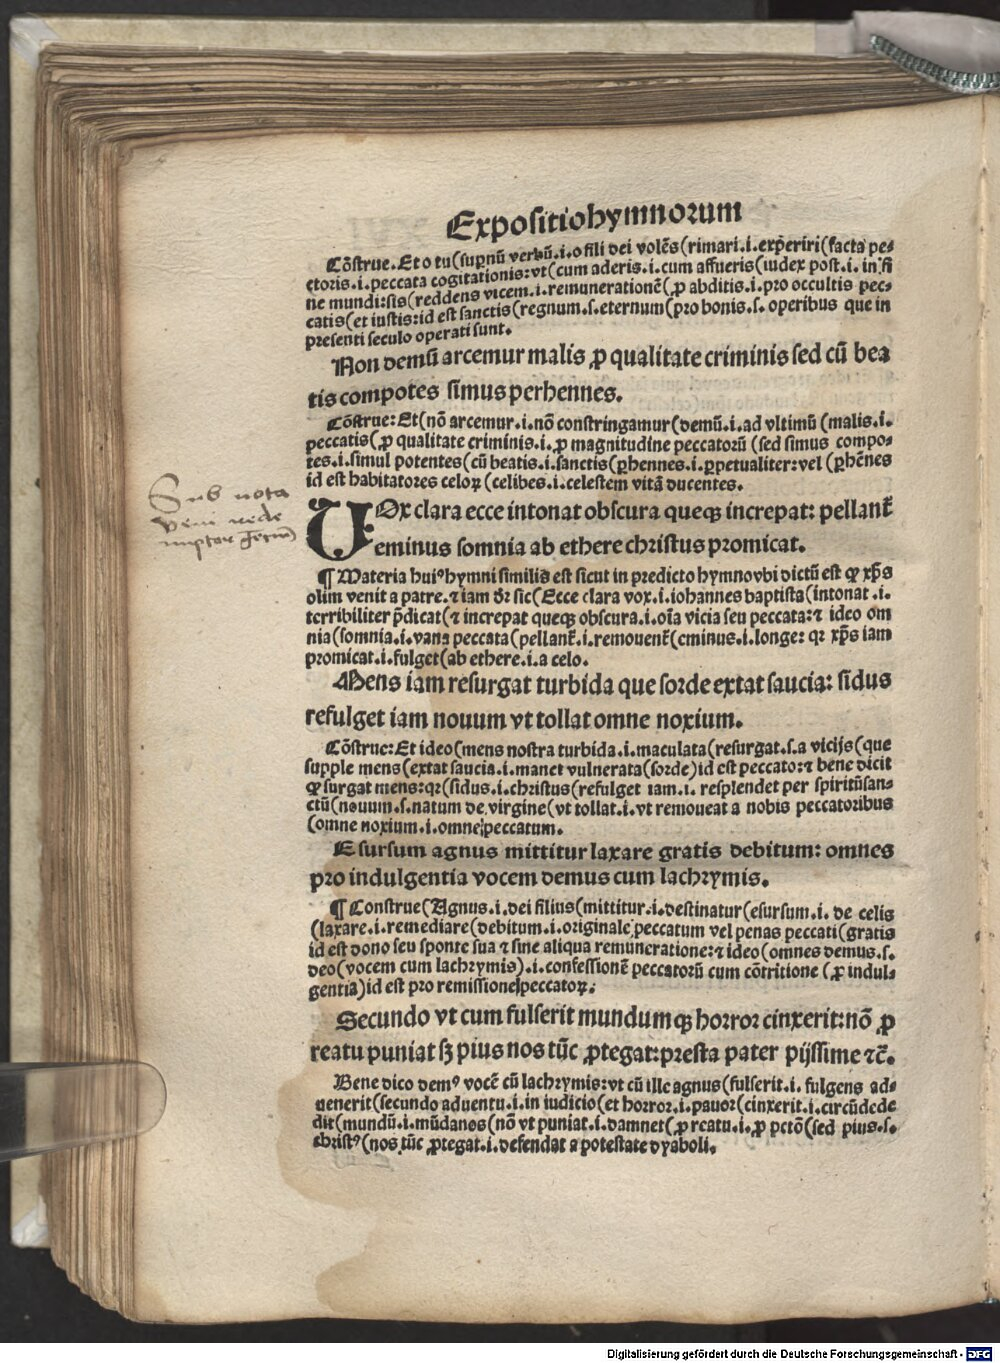 Expositio hymnorum
Cõstrue. Et o tu (supernũ verbũ .i. o fili dei volẽs (rimari .i. experiri (facta pe⸗
ctoris .i. peccata cogitationis: vt (cum aderis .i. cum affueris (iudex post .i. in fi
ne mundi: sis (reddens vicem .i. remunerationẽ (ꝓ abditis .i. pro occultis pec⸗
catis (et iustis: id est sanctis (regnum .s. eternum (pro bonis .s. operibus que in
presenti seculo operati sunt.
Non demũ arcemur malis ꝓ qualitate criminis sed cũ bea
tis compotes simus perhennes.
Cõstrue: Et (nõ arcemur .i. nõ constringamur (demũ .i. ad vltimũ (malis .i.
peccatis (ꝓ qualitate criminis .i. ꝓ magnitudine peccatorũ (sed simus compo⸗
tes .i. simul potentes (cũ beatis .i. sanctis (ꝑhennes .i. ꝑpetualiter: vel (ꝑhẽnes
id est habitatores celoꝝ (celibes .i. celestem vitã ducentes.
Sub nota
veni rede
mptor gentiũ
VOx clara ecce intonat obscura queqꝫ increpat: pellant᷑
eminus somnia ab ethere christus promicat.
¶ Materia huiꝰ hymni similis est sicut in predicto hymno vbi dictũ est ꝙ xp̃s
olim venit a patre. ⁊ iam dr̃ sic (Ecce clara vox .i. iohannes baptista (intonat .i.
terribiliter p̃dicat (⁊ increpat queqꝫ obscura .i. oĩa vicia seu peccata: ⁊ ideo om
nia (somnia .i. vana peccata (pellant᷑ .i. remouent᷑ (eminus .i. longe: qꝛ xp̃s iam
promicat .i. fulget (ab ethere .i. a celo.
Mens iam resurgat turbida que sorde extat saucia: sidus
refulget iam nouum vt tollat omne noxium.
Cõstrue: Et ideo (mens nostra turbida .i. maculata (resurgat .s. a vicijs (que
supple mens (extat saucia .i. manet vulnerata (sorde) id est peccato: ⁊ bene dicit
ꝙ surgat mens: qꝛ (sidus .i. christus (refulget iam .i. resplendet per spiritũ san⸗
ctũ (nouum .s. natum de virgine (vt tollat .i. vt remoueat a nobis peccatoribus
(omne noxium .i. omne peccatum.
E sursum agnus mittitur laxare gratis debitum: omnes
pro indulgentia vocem demus cum lachrymis.
¶ Construe (Agnus .i. dei filius (mittitur .i. destinatur (esursum .i. de celis
(laxare .i. remediare (debitum .i. originale peccatum vel penas peccati (gratis
id est dono seu sponte sua ⁊ sine aliqua remuneratione: ⁊ ideo (omnes demus .s.
deo (vocem cum lachrymis) .i. confessionẽ peccatorũ cum cõtritione (ꝓ indul⸗
gentia) id est pro remissione peccatoꝝ.
Secundo vt cum fulserit mundumqꝫ horror cinxerit: nõ ꝓ
reatu puniat sꝫ pius nos tũc ꝓtegat: presta pater pijssime ⁊c̃.
Bene dico demꝰ vocẽ cũ lachrymis: vt cũ ille agnus (fulserit .i. fulgens ad⸗
uenerit (secundo aduentu .i. in iudicio (et horror .i. pauor (cinxerit .i. circũdede
dit (mundũ .i. mũdanos (nõ vt puniat .i. damnet (ꝓ reatu .i. ꝓ pctõ (sed pius .s.
christꝰ (nos tũc ꝓtegat .i. defendat a potestate dyaboli.
Digitalisierung gefördert durch die Deutsche Forschungsgemeinschaft - DFG